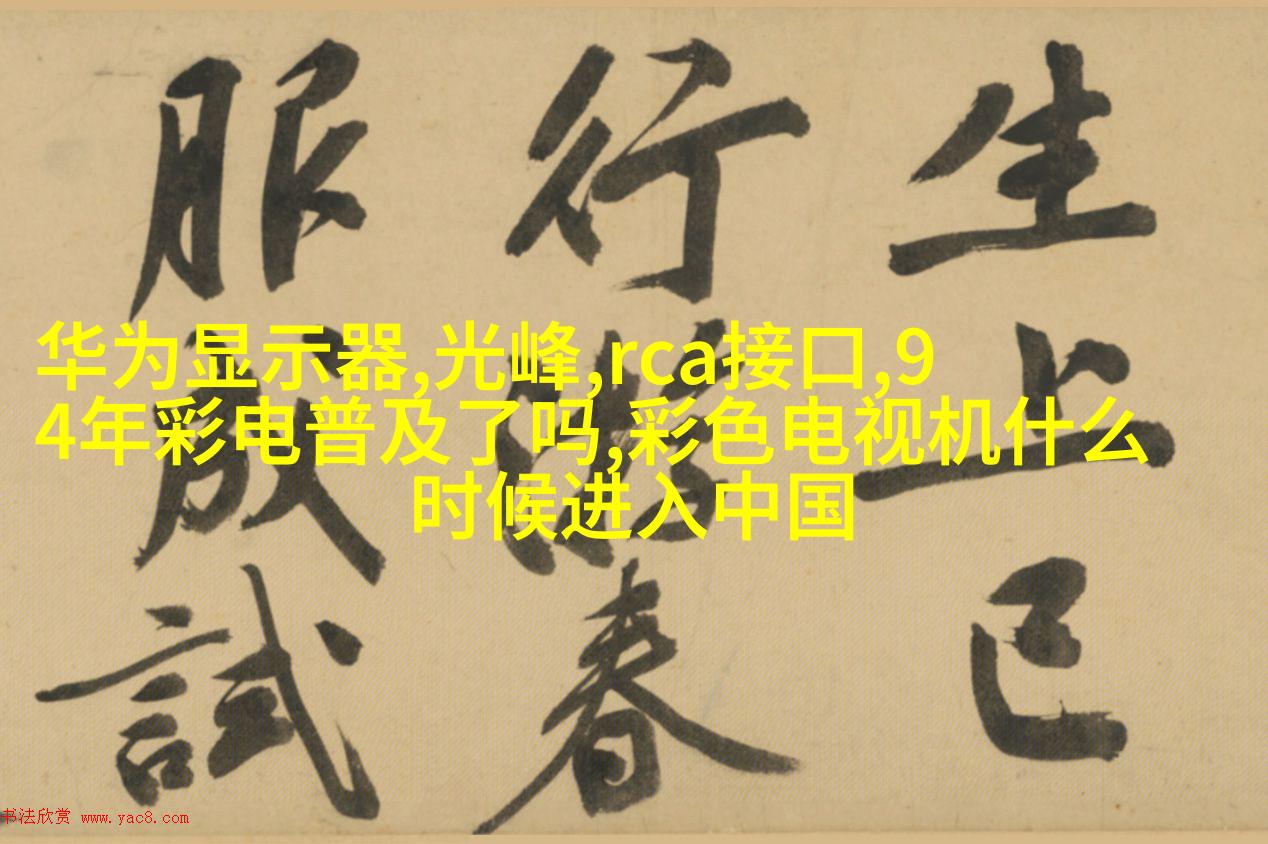 生上已
行春
服成試
华为显示器,光峰,rca接口,9
4年彩电普及了吗,彩色电视机什么
时候进入中国
书法欣赏 www.yac8.com